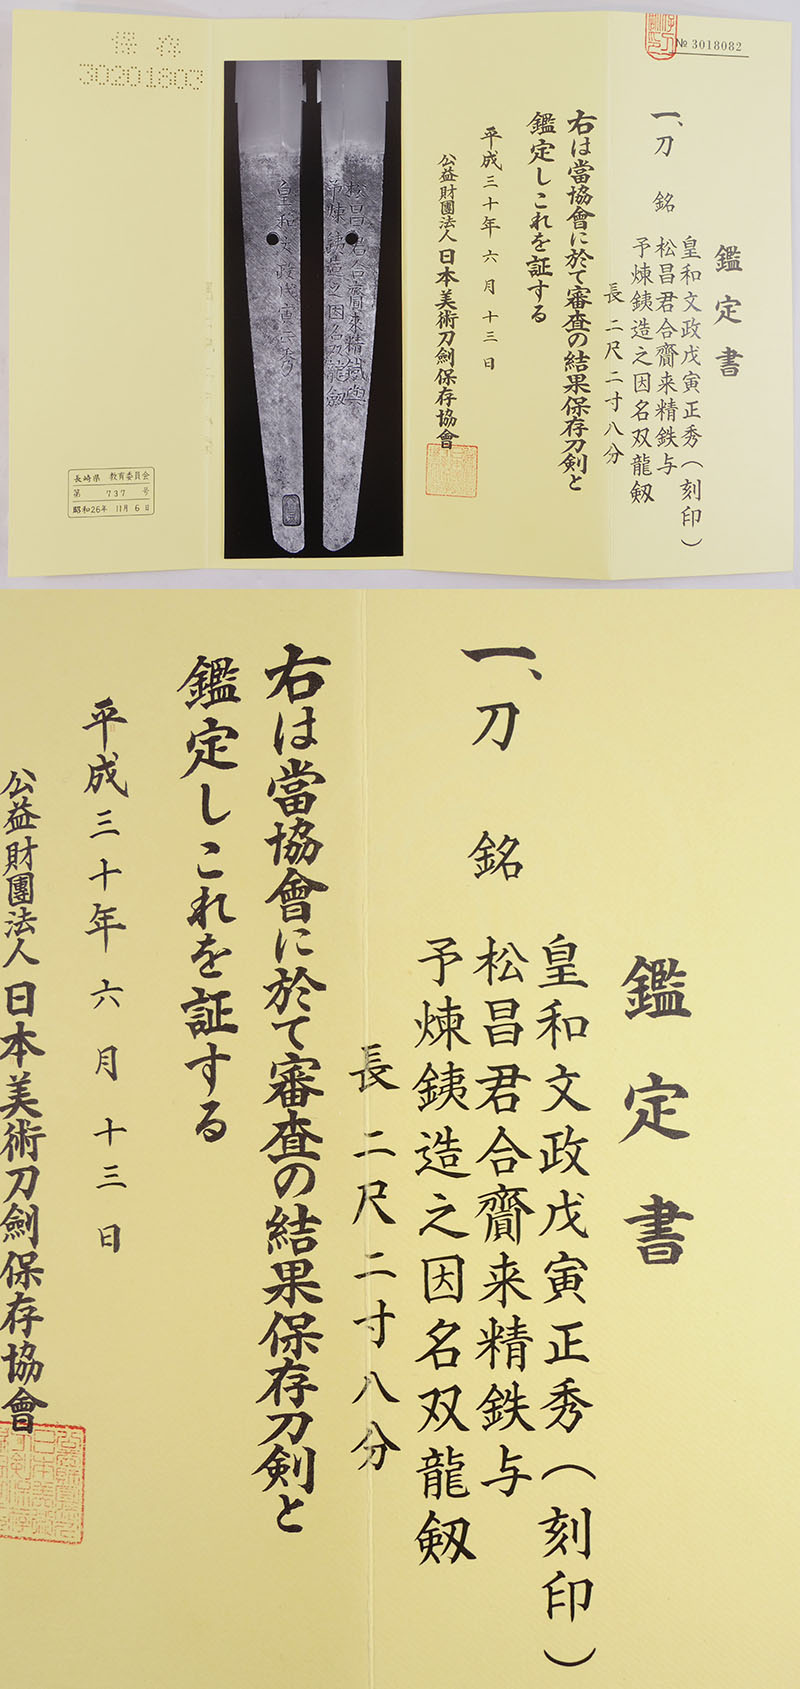 № 3018082
鑑定書
一、刀 銘
皇和文政戊寅正秀(刻印)
松昌君合齎来精鉄与
予煉銕造之因名双龍剱
長 二尺二寸八分
右は當協會に於て審査の結果保存刀剣と
鑑定しこれを証する
平成三十年六月十三日
公益財團法人日本美術刀劍保存協會
松昌君合齎来精鐵與
予煉銕造之因名双龍劔
皇和文政戊寅正秀
保存
30201803
長崎県 教育委員会
第 737 号
昭和26年 11月 6日
鑑定書
一、刀 銘
皇和文政戊寅正秀(刻印)
松昌君合齎来精鉄与
予煉銕造之因名双龍剱
長 二尺二寸八分
右は當協會に於て審査の結果保存刀剣と
鑑定しこれを証する
平成三十年六月十三日
公益財團法人日本美術刀劍保存協會